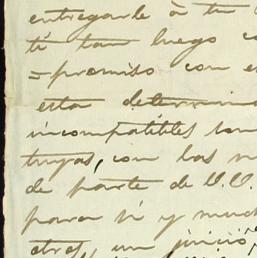 entregarle à tu
ti tan luego co
=promiso con e
esta determina
incompatibles con
tuyas, con las n
de parte de U.U.
para si y much
otros, un juicio